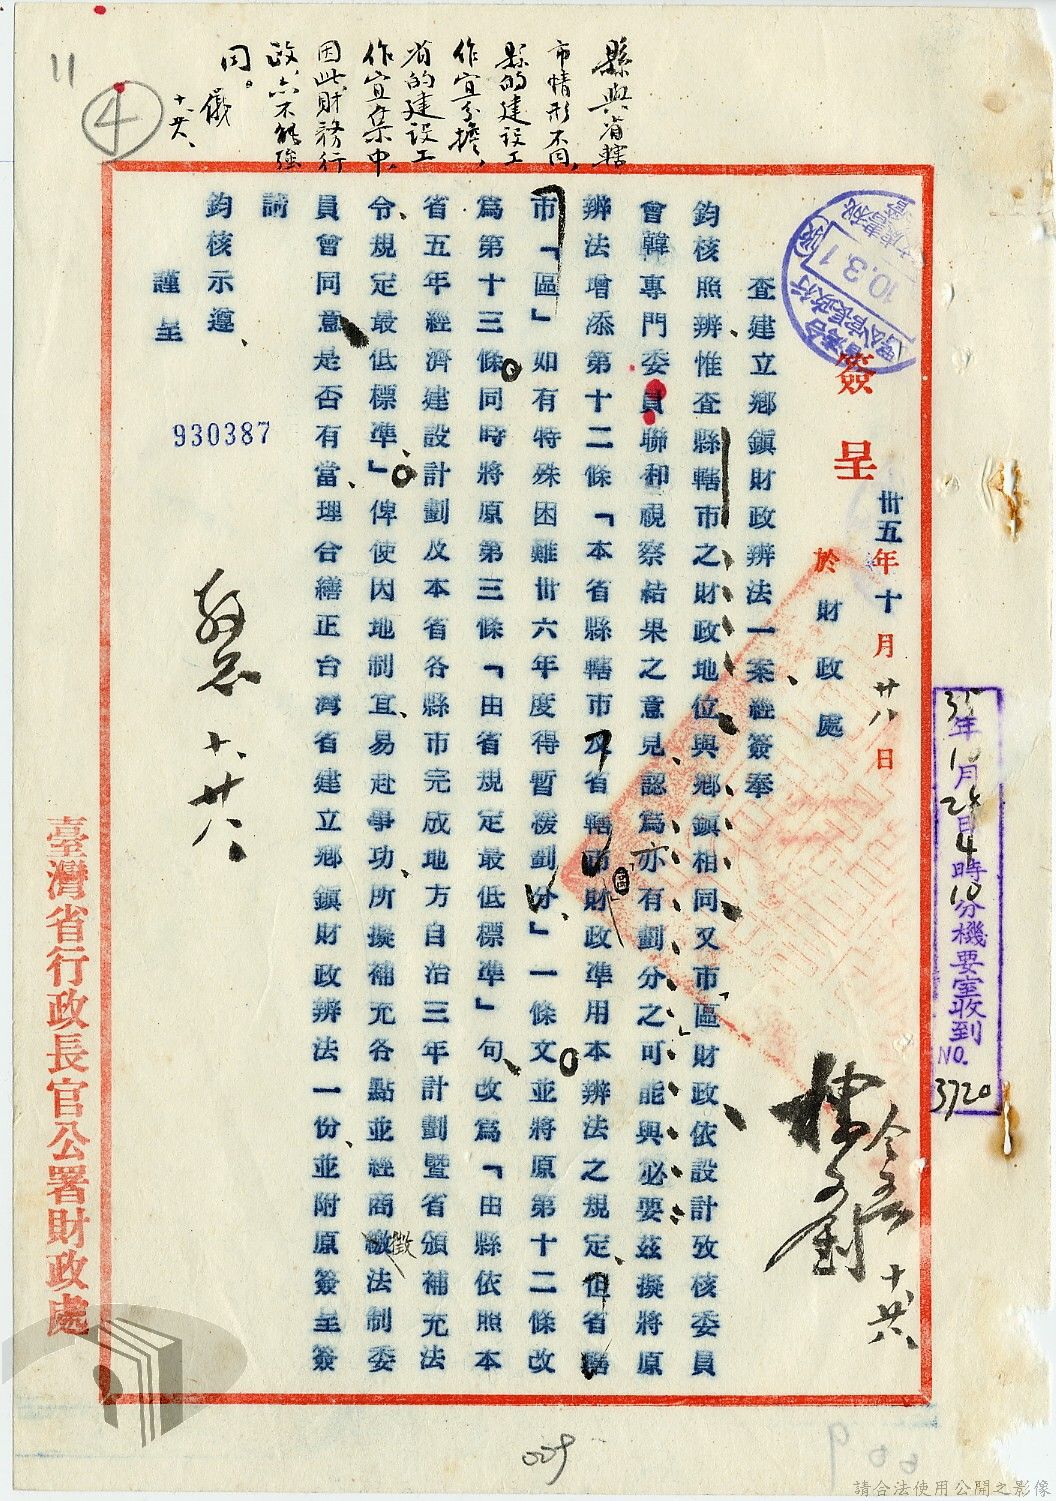 簽呈
卅五年十月廿八日
於財政處
查建立鄉鎮財政辨法一案經簽奉
鈞核照辨惟查縣轄市之財政地位與鄉鎮相同又市區財政依設計攷核委員
會韓專門委員聯和視察結果之意見認為亦有劃分之可能與必要茲擬將原
辨法增添第十二條「本省縣轄市及省轄市「區」財政準用本辨法之規定但省轄
市「區」如有特殊困難卅六年度得暫緩劃分」一條文並將原第十二條改
為第十三條同時將原第三條「由省規定最低標準」句改為「由縣依照本
省五年經濟建設計劃及本省各縣市完成地方自治三年計劃暨省頒補充法
令規定最低標準」俾使因地制宜易赴事功所擬補充各點並經商徵法制委
員會同意是否有當理合繕正台灣省建立鄉鎮財政辨法一份並附原簽呈簽
請
鈞核示遵
謹呈
930387
十、廿八、
縣與省轄
市情形不同,
縣的建設工
作宜分擔,
省的建設工
作宜集中,
因此財務行
政亦不能強
同。
儀
十、廿八、
④
11
10.3.1
35年10月28日4時10分機要室收到
NO. 3720
臺灣省行政長官公署財政處
029
請合法使用公開之影像